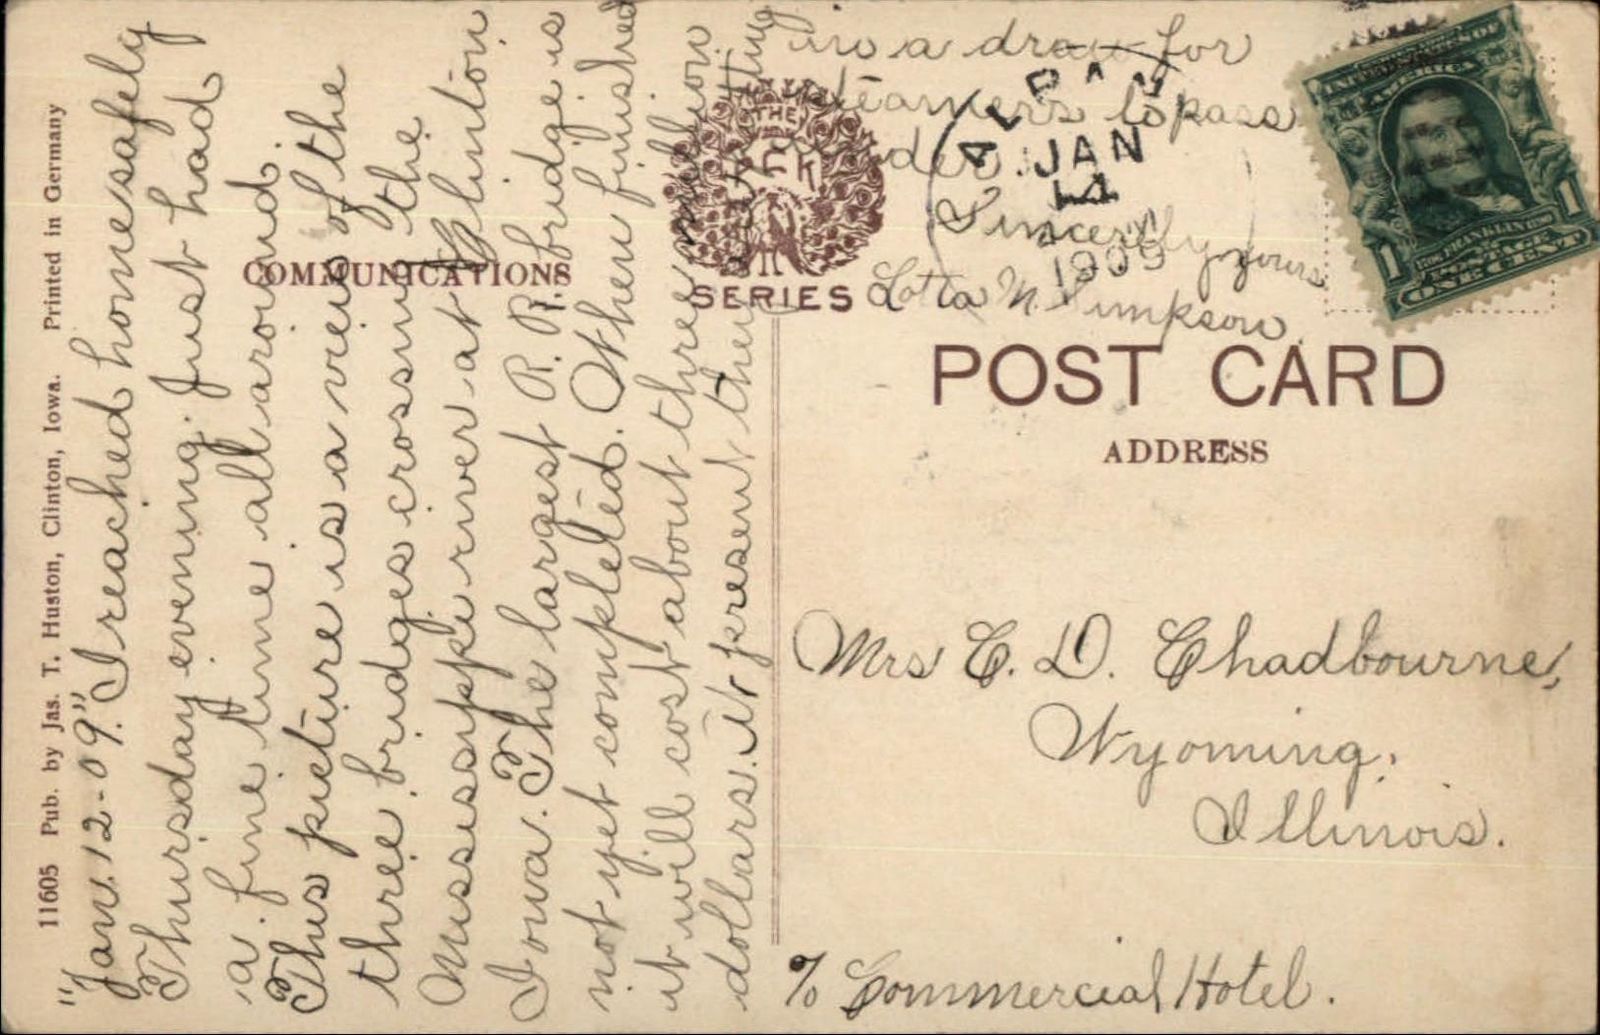 11605 Pub. by Jas. T. Huston, Clinton, Iowa. Printed in Germany
"Jan. 12-09." I reached home safely
Thursday evening. Just had
a fine time all around.
This picture is a view of the
three bridges crossing the
Mississippi river at Clinton
Iowa. The largest R. R. bridge is
not yet completed. When finished
it will cost about three million
dollars. At present they are putting
in a draw for
steamers to pass
under.
Sincerely yours
Lotta M. Simpson
COMMUNICATIONS
THE
SERIES
JAN
14
1909
1 FRANKLIN 1
POSTAGE
ONE CENT
POST CARD
ADDRESS
Mrs C. D. Chadbourne,
Wyoming,
Illinois.
% Commercial Hotel.